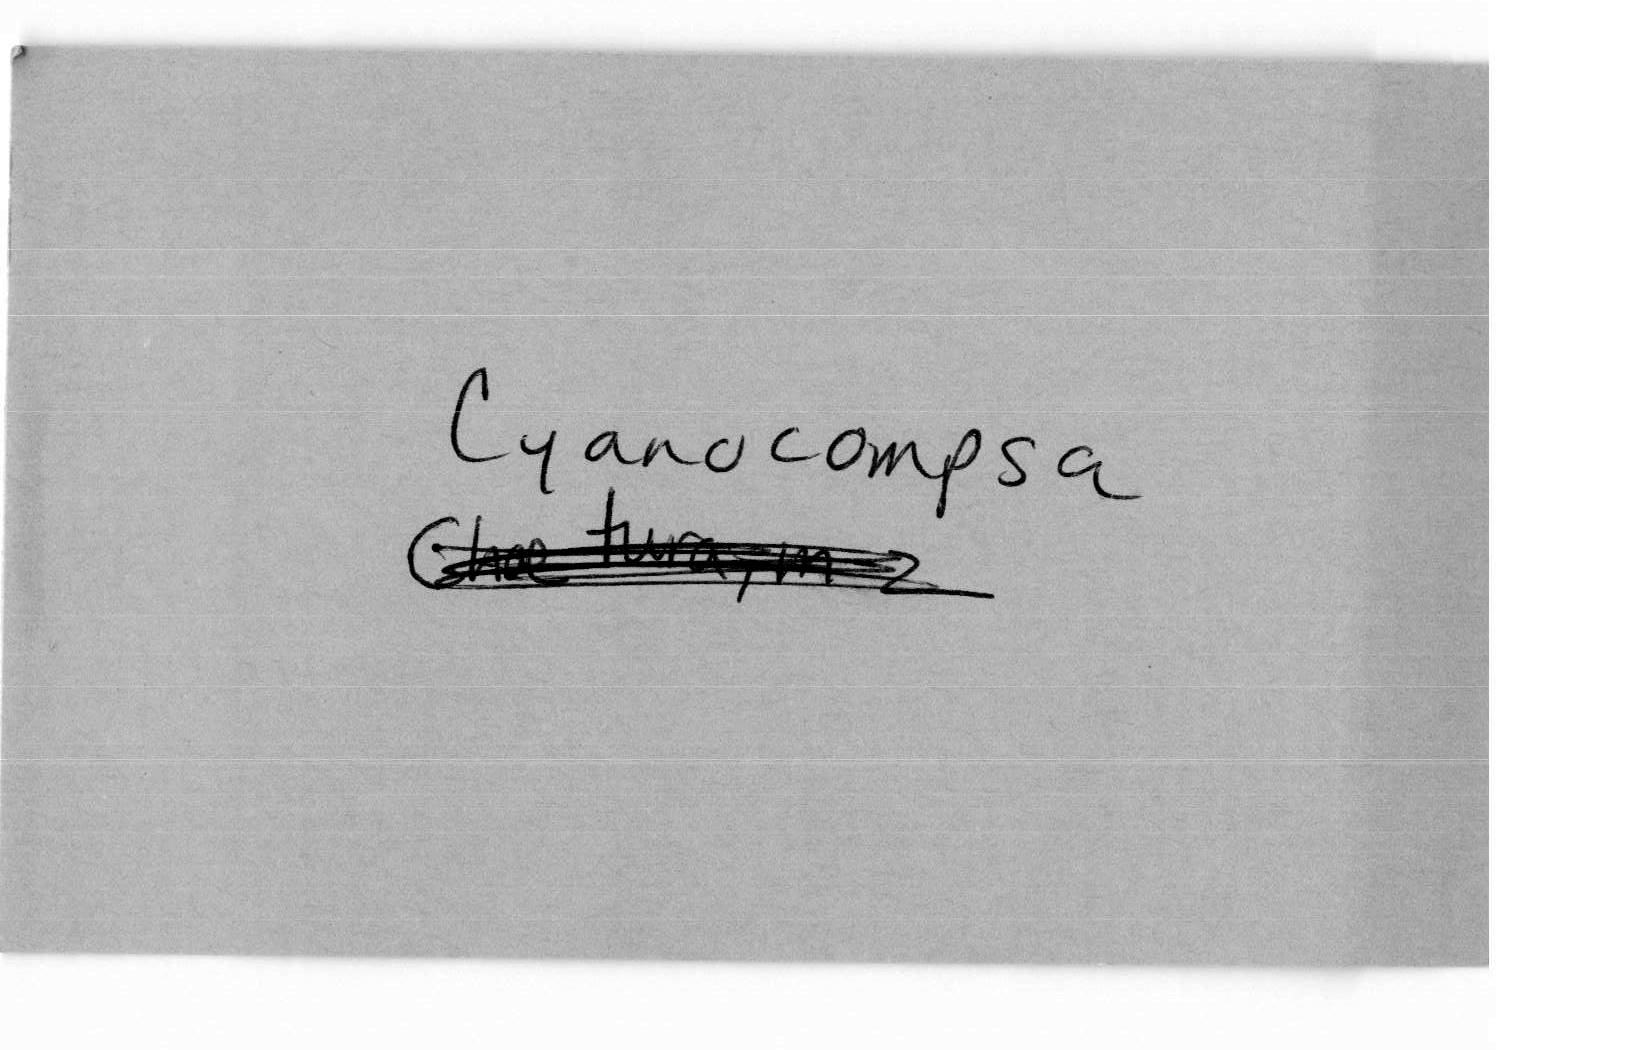 Cyanocompsa
Chaetura, m